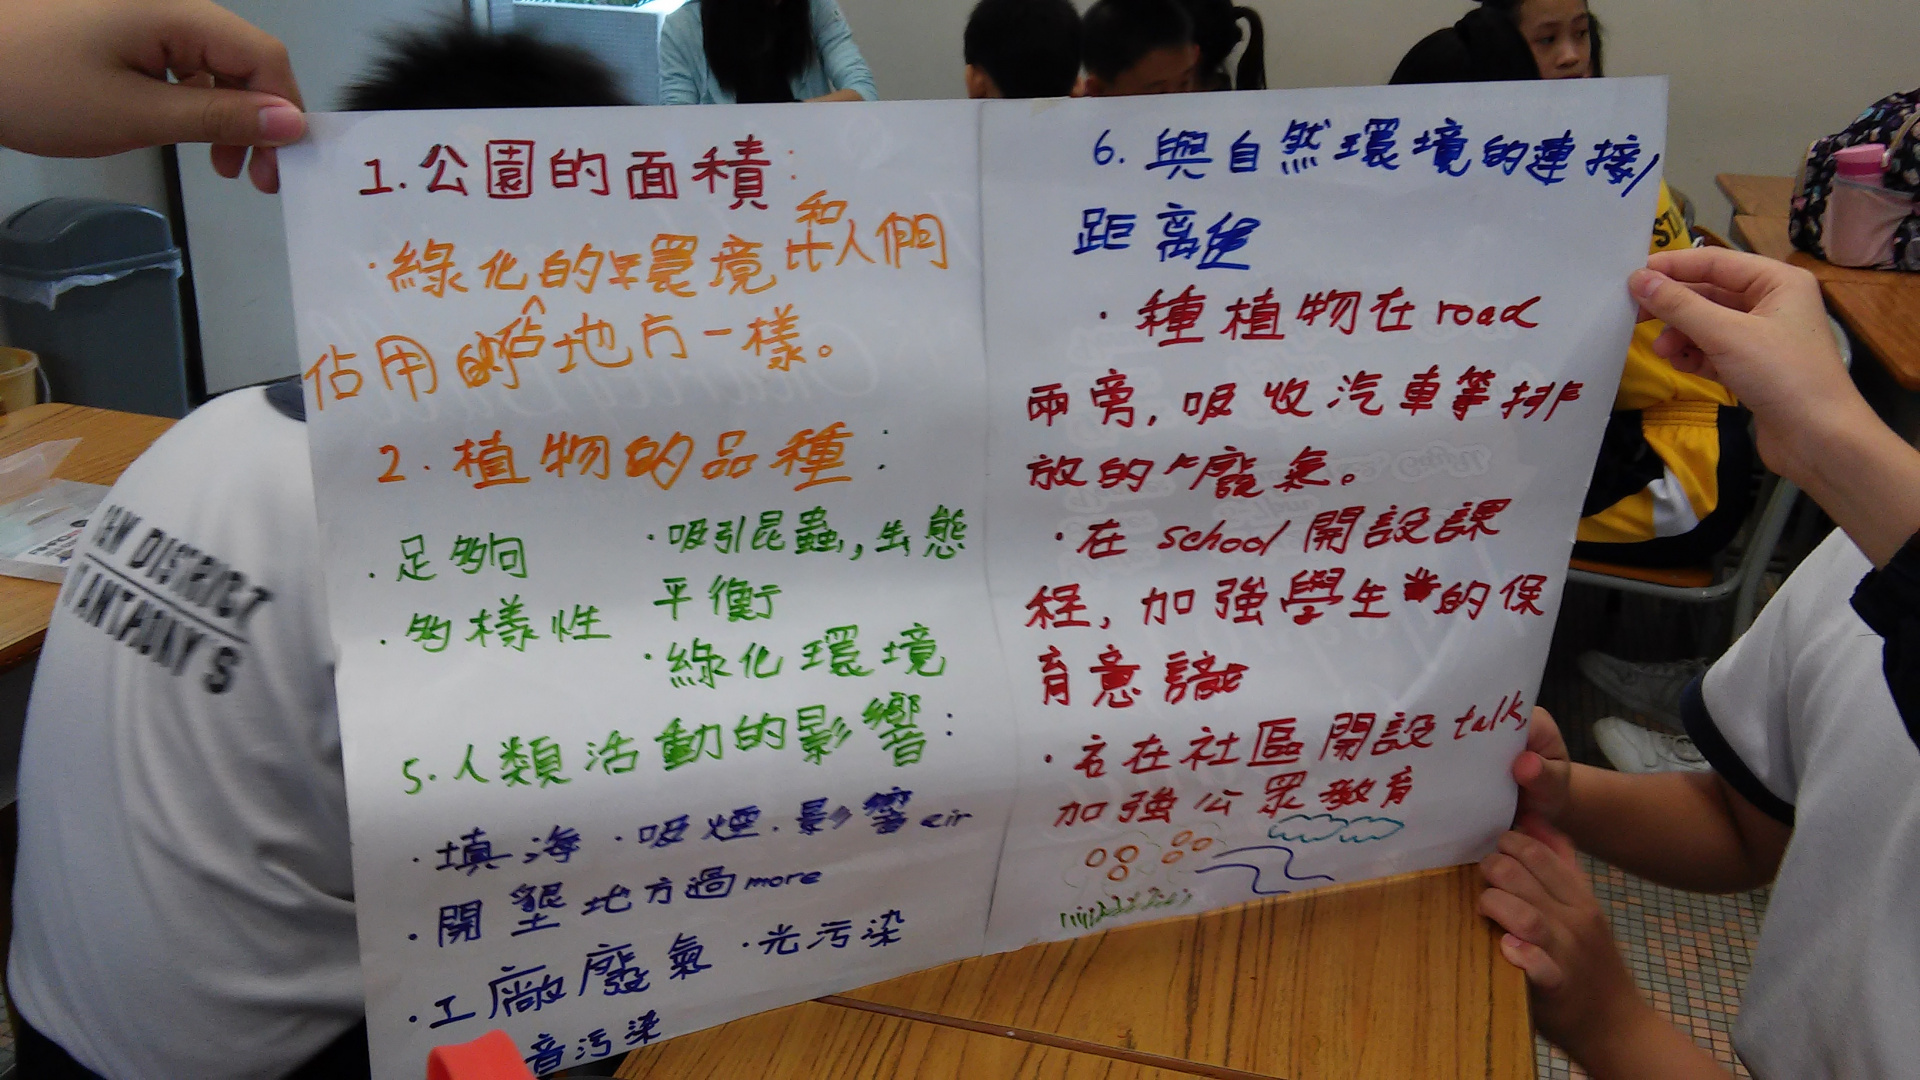 1. 公園的面積:
·綠化的環境和比人們
佔用的佔地方一樣。
2. 植物的品種:
·足夠
·多樣性
·吸引昆蟲,生態
平衡
·綠化環境
5. 人類活動的影響:
·填海 ·吸煙.影響air
·開墾地方過more
·工廠廢氣 ·光污染
音污染
6. 與自然環境的連接/
距離
·種植物在road
兩旁,吸收汽車等排
放的廢氣。
·在school開設課
程,加強學生的保
育意識
·在社區開設talk,
加強公眾教育
DISTRICT
ANTHONY'S